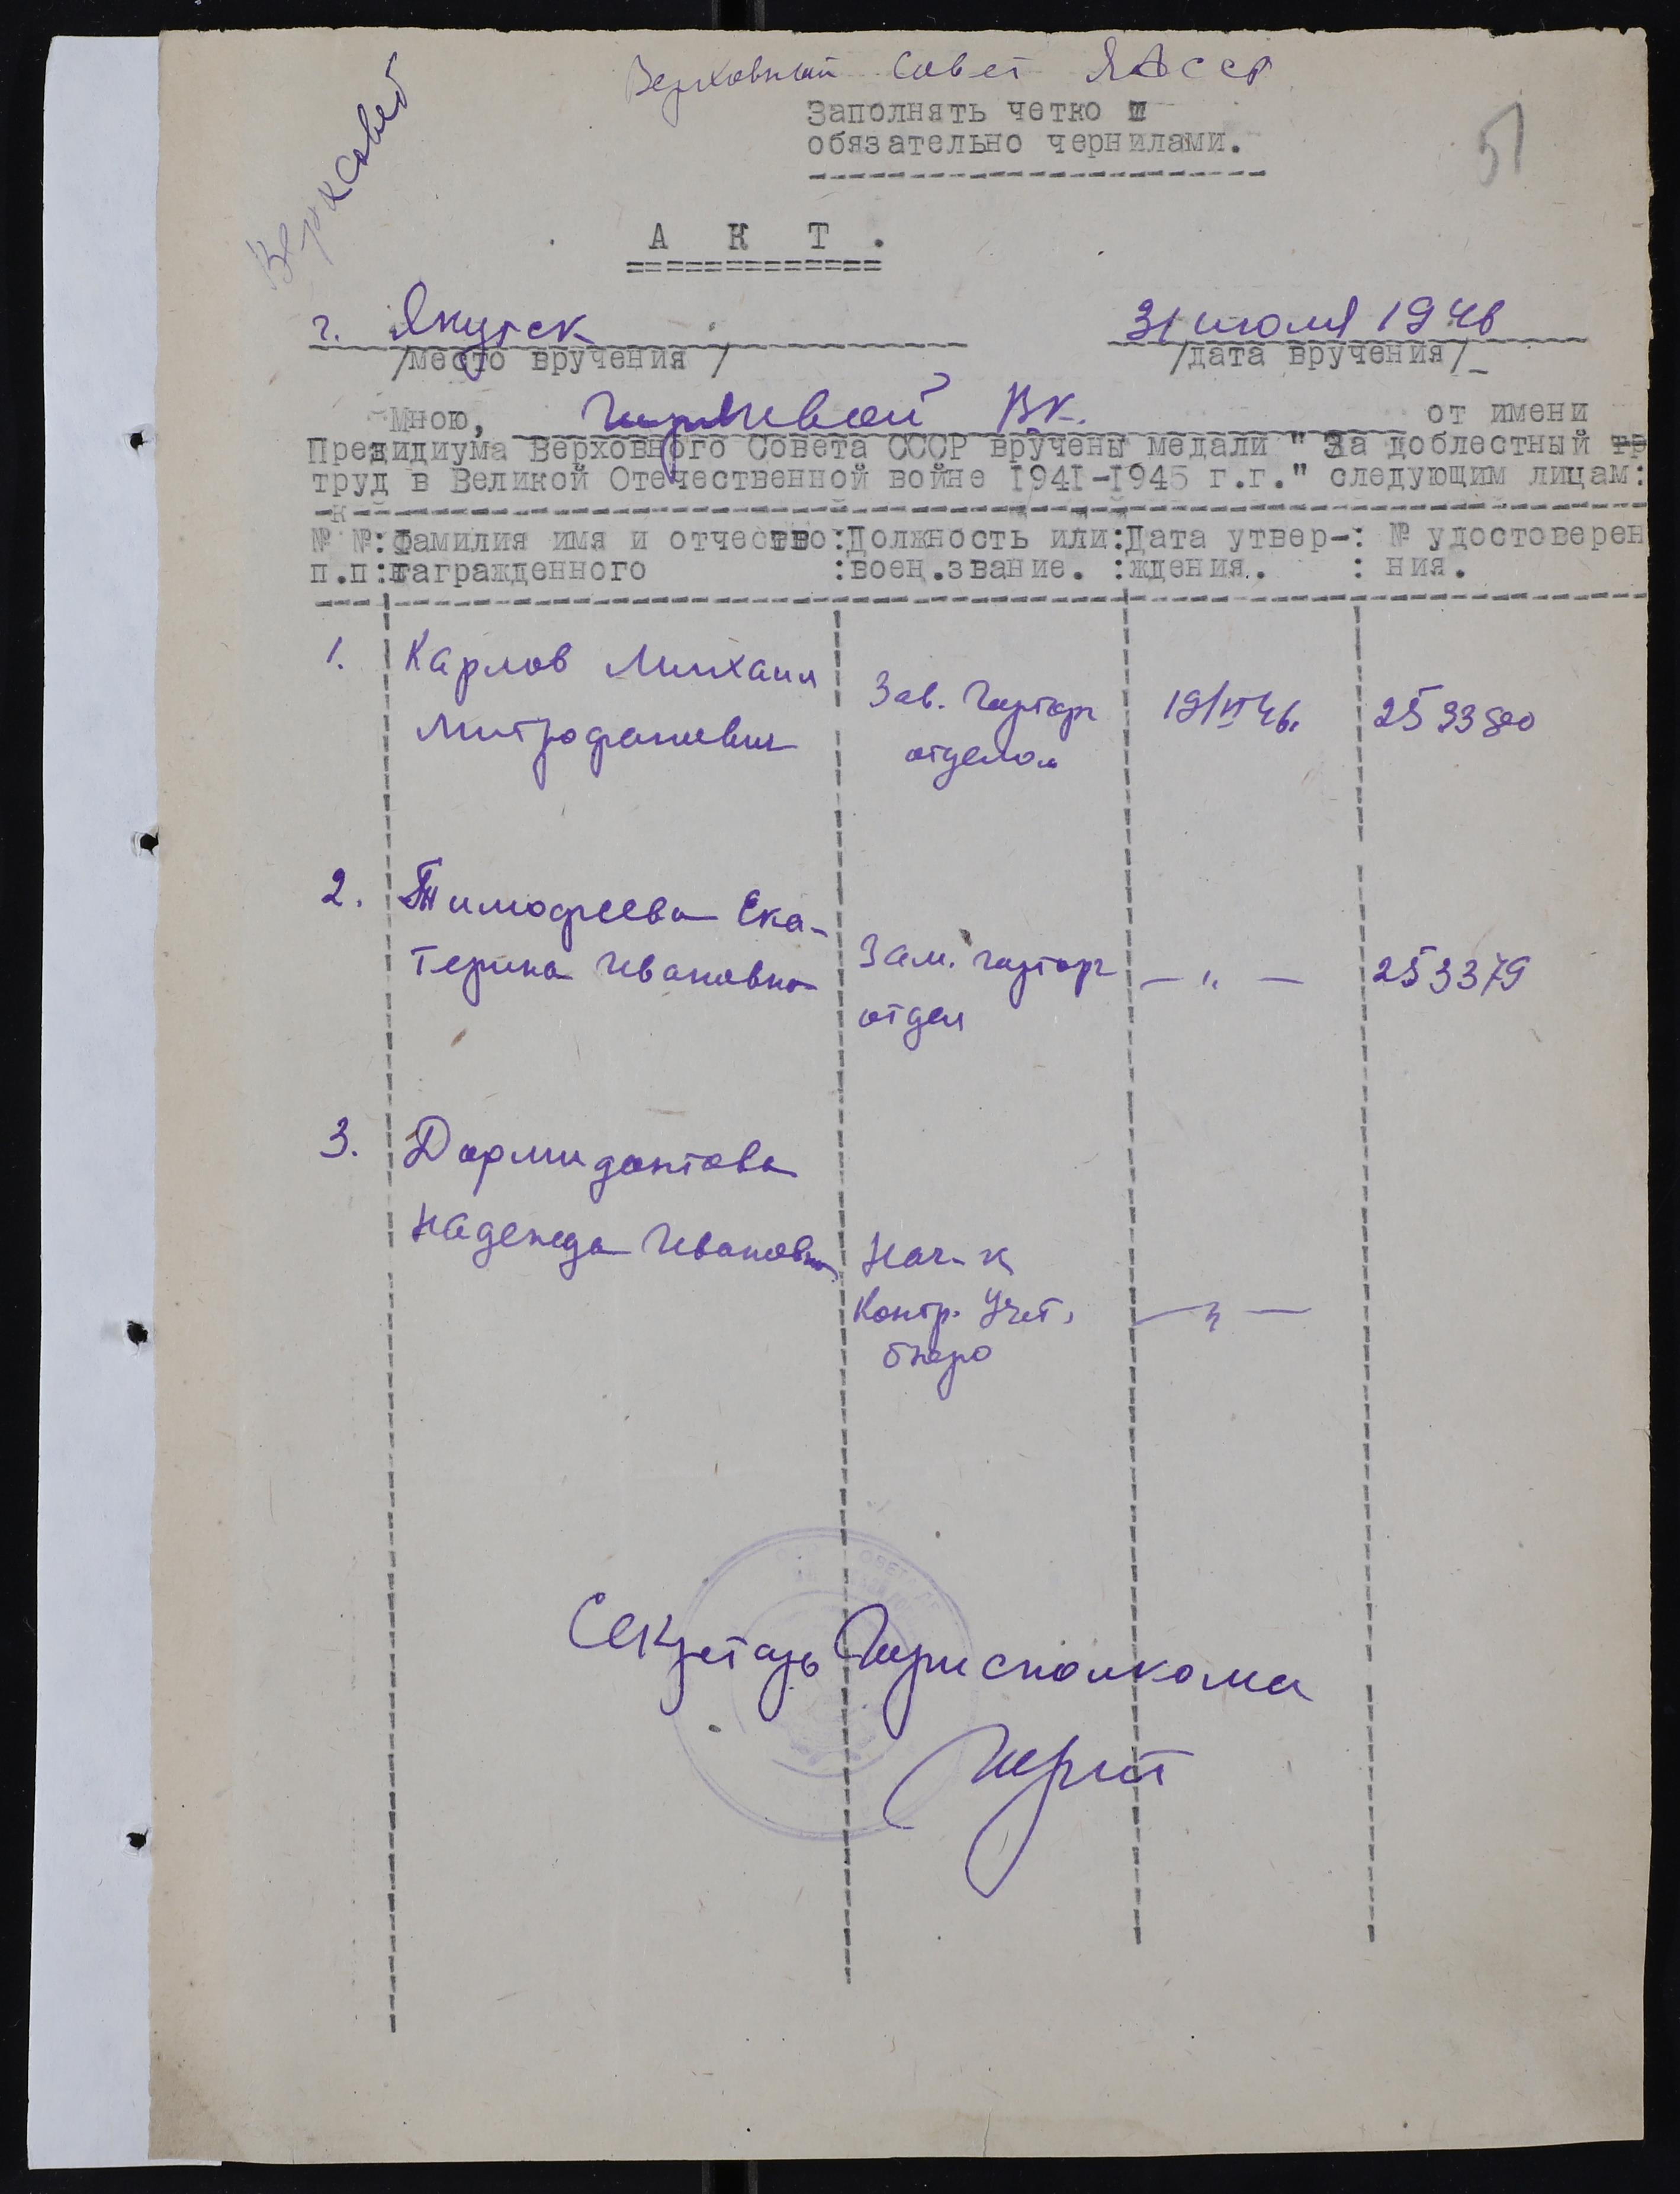 Верховный Совет ЯАССР
Верхсовет
51
Заполнять четко и
обязательно чернилами.
А К Т .
г. Якутск
31 июля 1946
/место вручения /
/дата вручения/
Мною, В.К. от имени
Президиума Верховного Совета СССР вручены медали " За доблестный тр
труд в Великой Отечественной войне 1941-1945 г.г." следующим лицам:
№ №:фамилия имя и отчество:Должность или:Дата утвер-: № удостоверен
п.п:награжденного :воен.звание. :ждения. : ния.
1. Карлов Михаил
Митрофанович
Зав.
отделом
19/VI 46. 253380
2. Тимофеева Ека-
терина Ивановна
Зам.
отдел
— " — 253379
3. Дормидонтова
Надежда Ивановна
Нач-к
Контр. Учет.
бюро
— " —
Секретарь Горисполкома